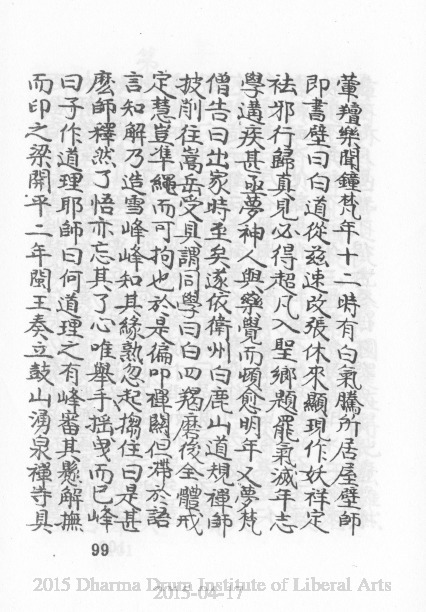 葷羶樂聞鐘梵年十二時有白氣騰所居屋壁師
即書壁曰白道從茲速改張休來顯現作妖祥定
祛邪行歸真見必得超凡入聖鄉題罷氣滅年志
學遘疾甚亟夢神人與藥覺而頓愈明年又夢梵
僧告曰出家時至矣遂依衛州白鹿山道規禪師
披削往嵩岳受具謂同學曰白四羯磨後全體戒
定慧豈準繩而可拘也於是徧叩禪關但滯於語
言知解乃造雪峰峰知其緣熟忽起搊住曰是甚
麼師釋然了悟亦忘其了心唯舉手搖曳而已峰
曰子作道理耶師曰何道理之有峰審其懸解撫
而印之梁開平二年閩王奏立鼓山湧泉禪寺具
99
2015 Dharma Drum Institute of Liberal Arts
2015-04-17